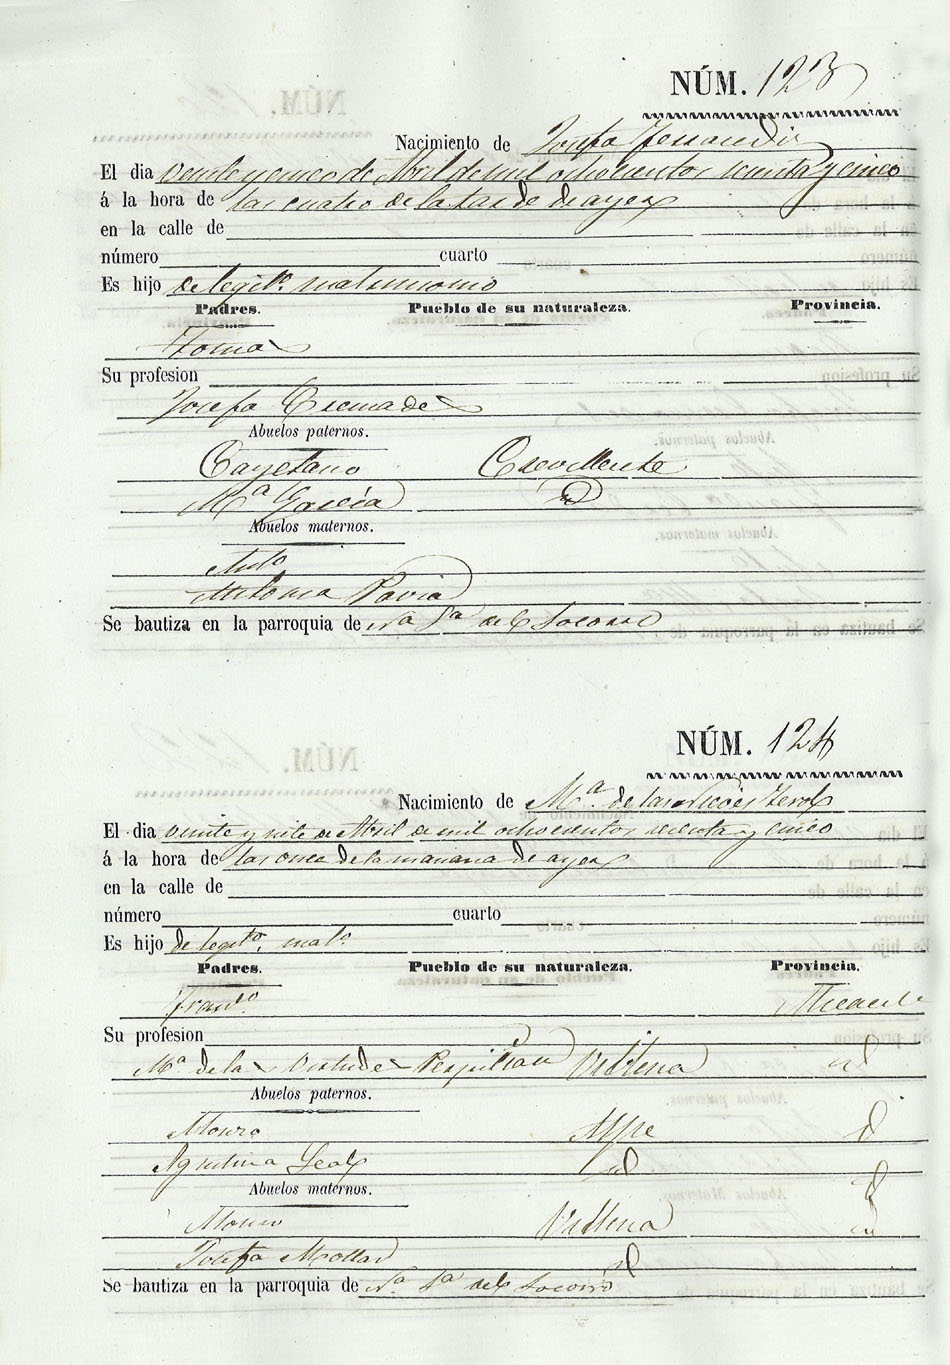 NÚM. 123
Nacimiento de Josefa Ferrandis
El dia veinte y cinco de Abril de mil ochocientos sesenta y cinco
á la hora de las cuatro de la tarde de ayer
en la calle de
número cuarto
Es hijo de legit.o matrimonio
Padres. Pueblo de su naturaleza. Provincia.
Tomas
Su profesion
Josefa Cremades
Abuelos paternos.
Cayetano Crevillente
M.a Garcia id
Abuelos maternos.
Ant.o
Antonia Pavia
Se bautiza en la parroquia de N.a S.a del Socorro
NÚM. 124
Nacimiento de M.a de las Nieves Terol
El dia veinte y siete de Abril de mil ochocientos sesenta y cinco
á la hora de las once de la mañana de ayer
en la calle de
número cuarto
Es hijo de legit.o mat.o
Padres. Pueblo de su naturaleza. Provincia.
Fran.co Alicante
Su profesion
M.a de las Virtudes Villena id
Abuelos paternos.
Aspe id
Agustina Leal id id
Abuelos maternos.
Alonso Villena id
Josefa id
Se bautiza en la parroquia de N.a S.a del Socorro